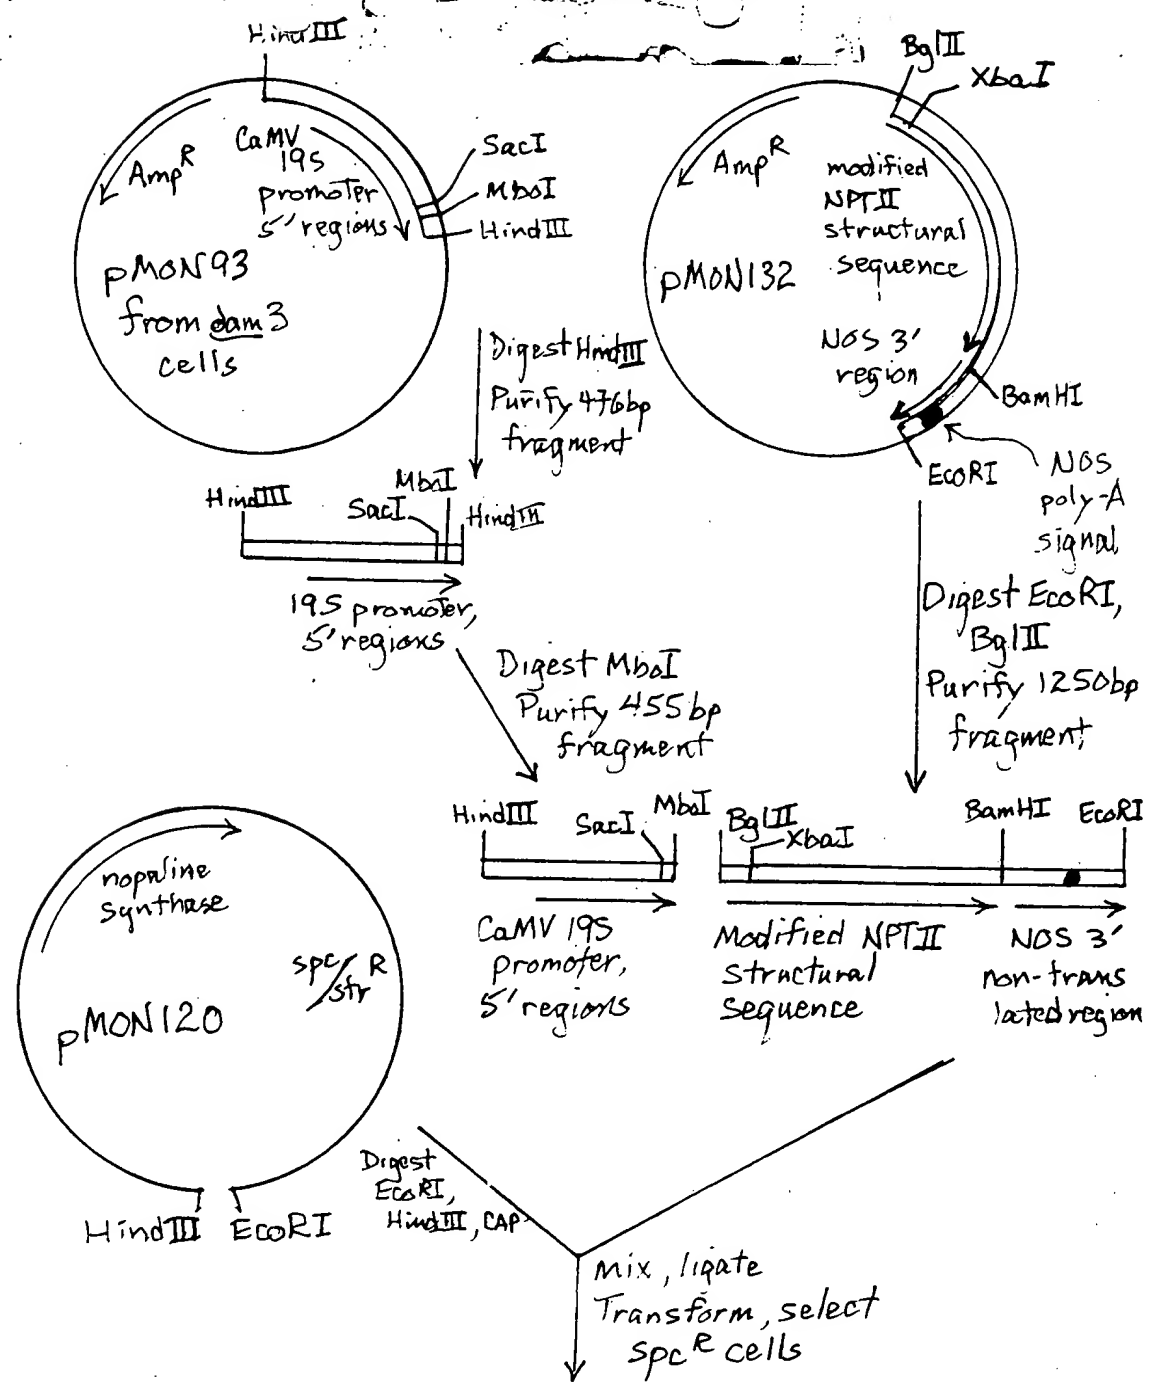 HindIII
CaMV
19S
promoter
5' regions
AmpR
SacI
MboI
HindIII
pMON93
from dam3
cells
BglII
XbaI
AmpR
modified
NPTII
structural
sequence
pMON132
NOS 3'
region
BamHI
EcoRI
NOS
poly-A
signal
Digest HindIII
Purify 476bp
fragment
HindIII
MboI
SacI
HindIII
19S promoter,
5' regions
Digest MboI
Purify 455bp
fragment
Digest EcoRI,
BglII
Purify 1250bp
fragment
HindIII
SacI
MboI
BglII
XbaI
BamHI
EcoRI
CaMV 19S
promoter,
5' regions
Modified NPTII
structural
sequence
NOS 3'
non-trans
lated region
nopaline
synthase
spc/str R
pMON120
HindIII
EcoRI
Digest
EcoRI,
HindIII, CAP
Mix, ligate
Transform, select
spcR cells